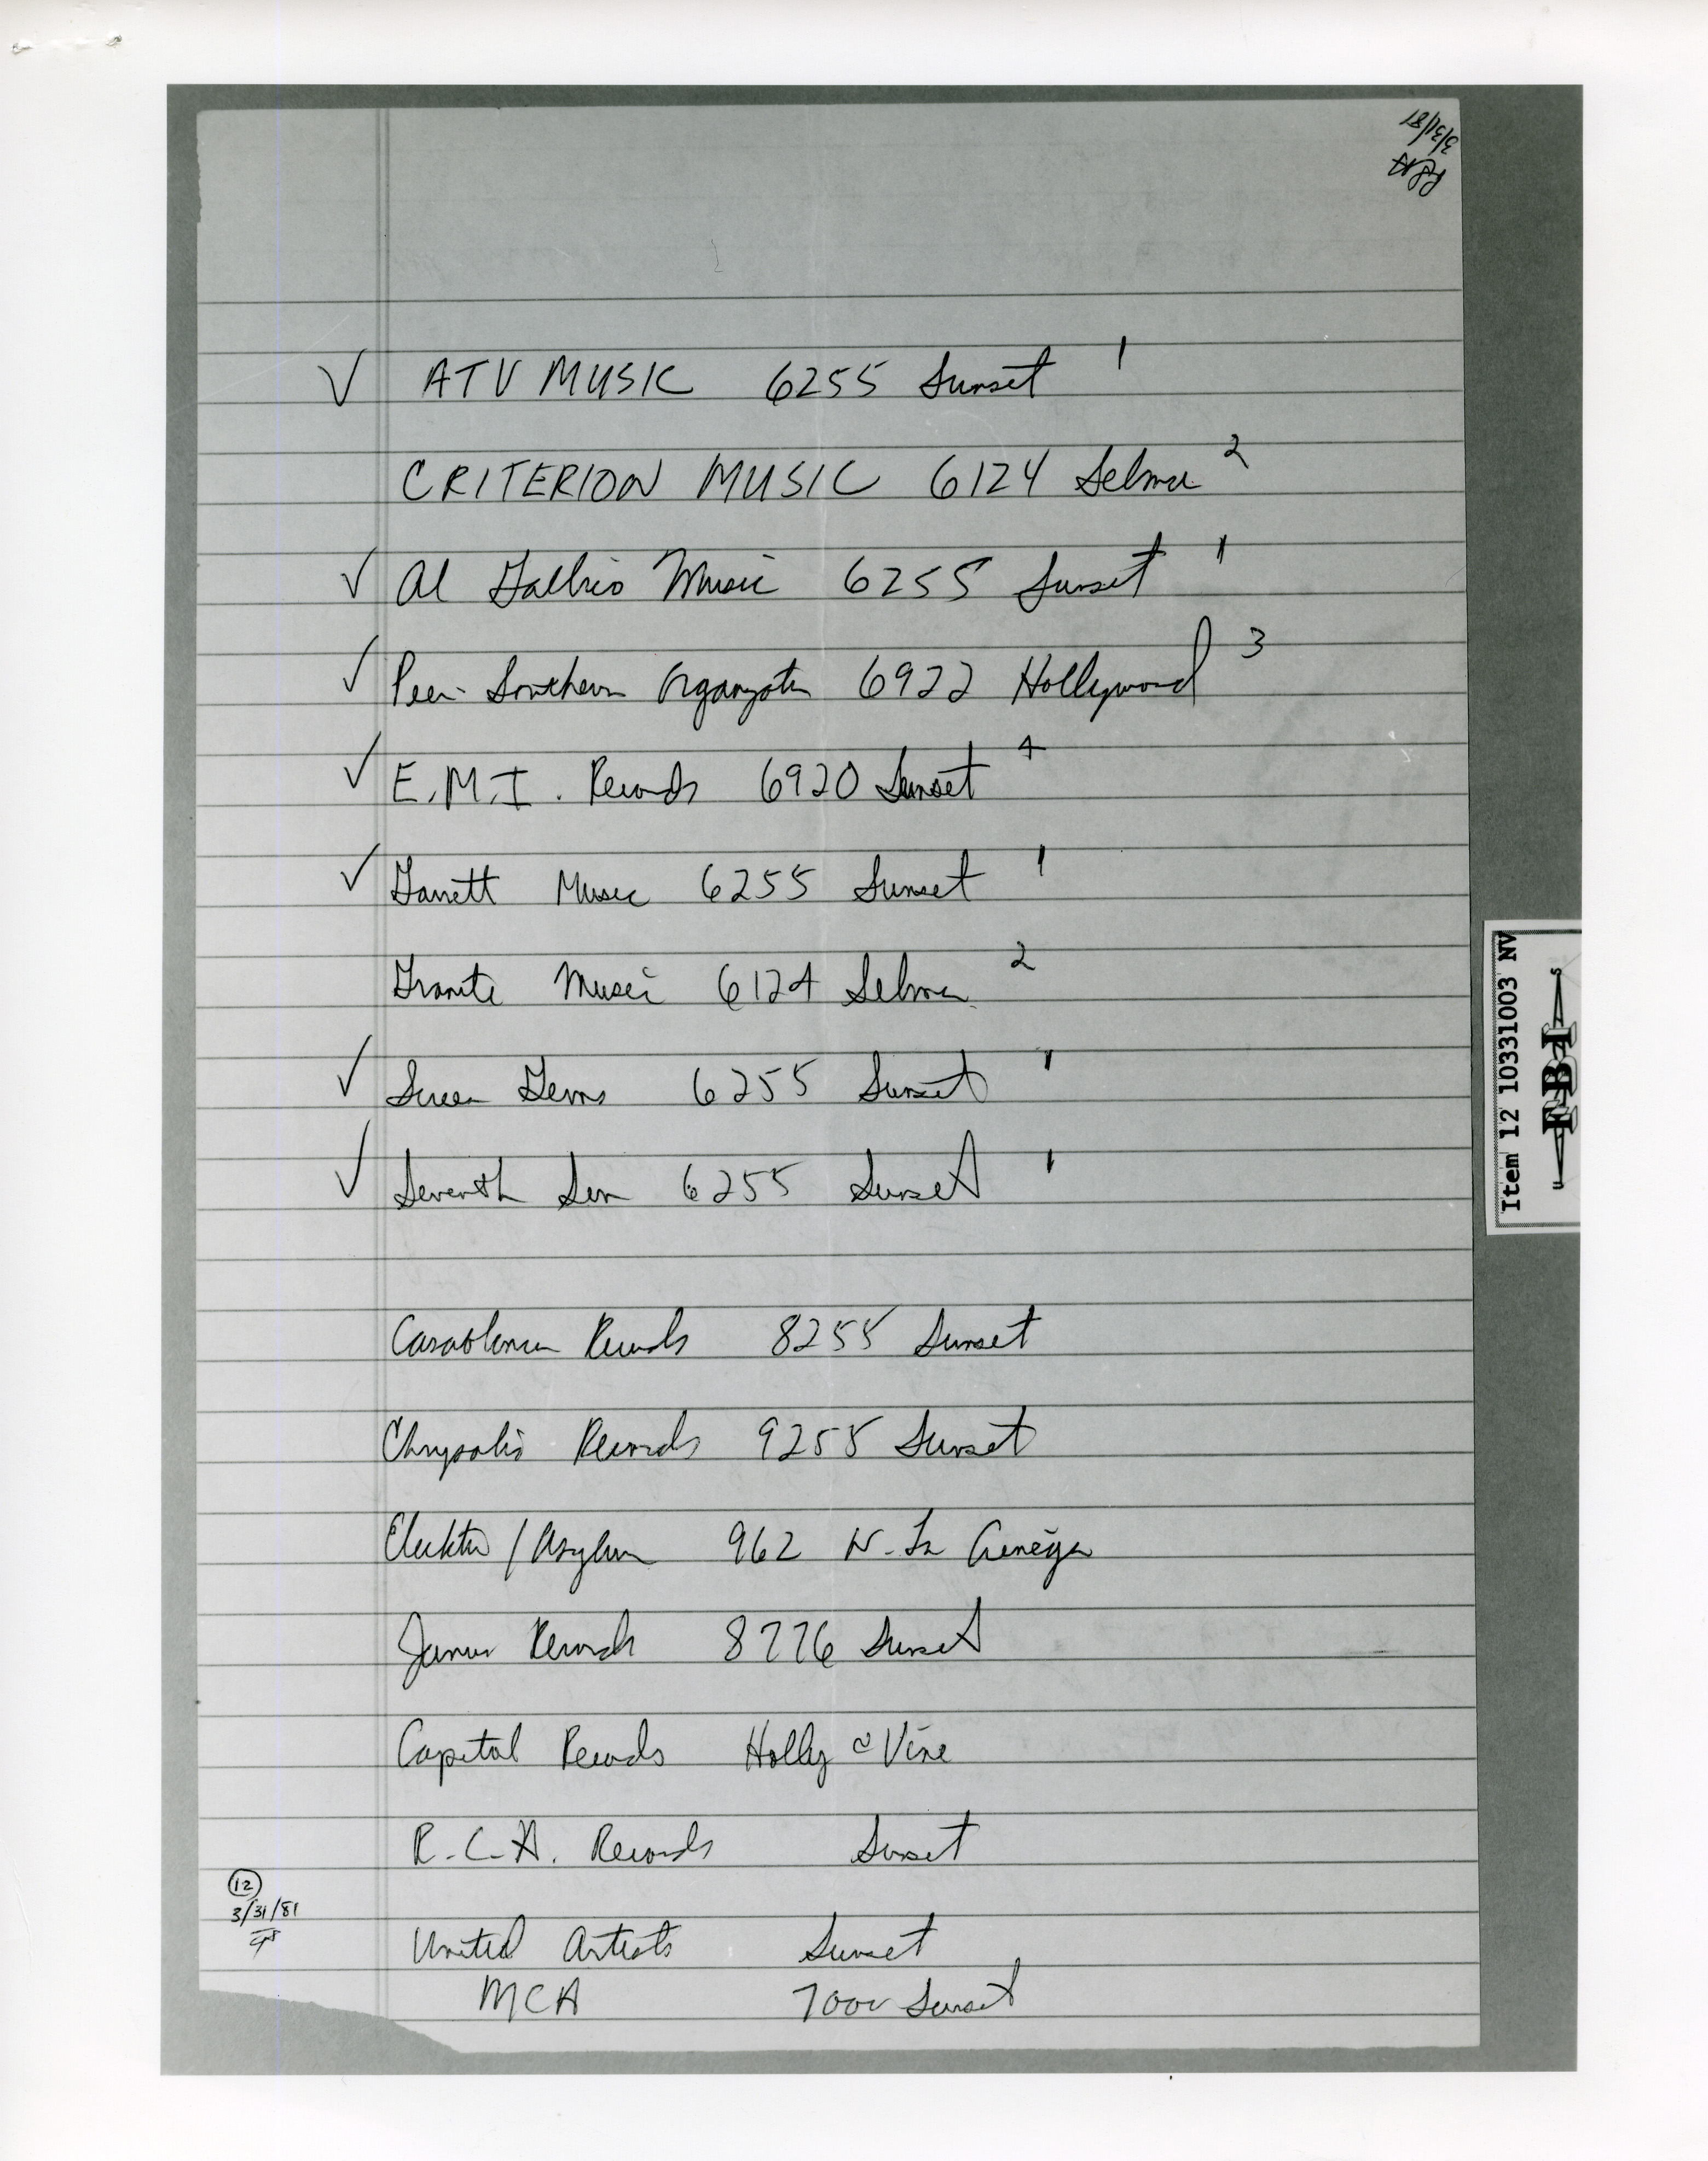 3/31/81
✓ ATV MUSIC 6255 Sunset 1
CRITERION MUSIC 6124 Selma 2
✓ Al Gallico Music 6255 Sunset 1
✓ Peer-Southern Organization 6922 Hollywood 3
✓ E.M.I. Records 6920 Sunset 4
✓ Garrett Music 6255 Sunset 1
Granite Music 6124 Selma 2
✓ Screen Gems 6255 Sunset 1
✓ Seventh Son 6255 Sunset 1
Casablanca Records 8255 Sunset
Chrysalis Records 9255 Sunset
Elektra / Asylum 962 N. La Cienega
Janus Records 8776 Sunset
Capitol Records Holly & Vine
R.C.A. Records Sunset
United Artists Sunset
MCA 7000 Sunset
12
3/31/81
Item 12 10331003 NV
FBI